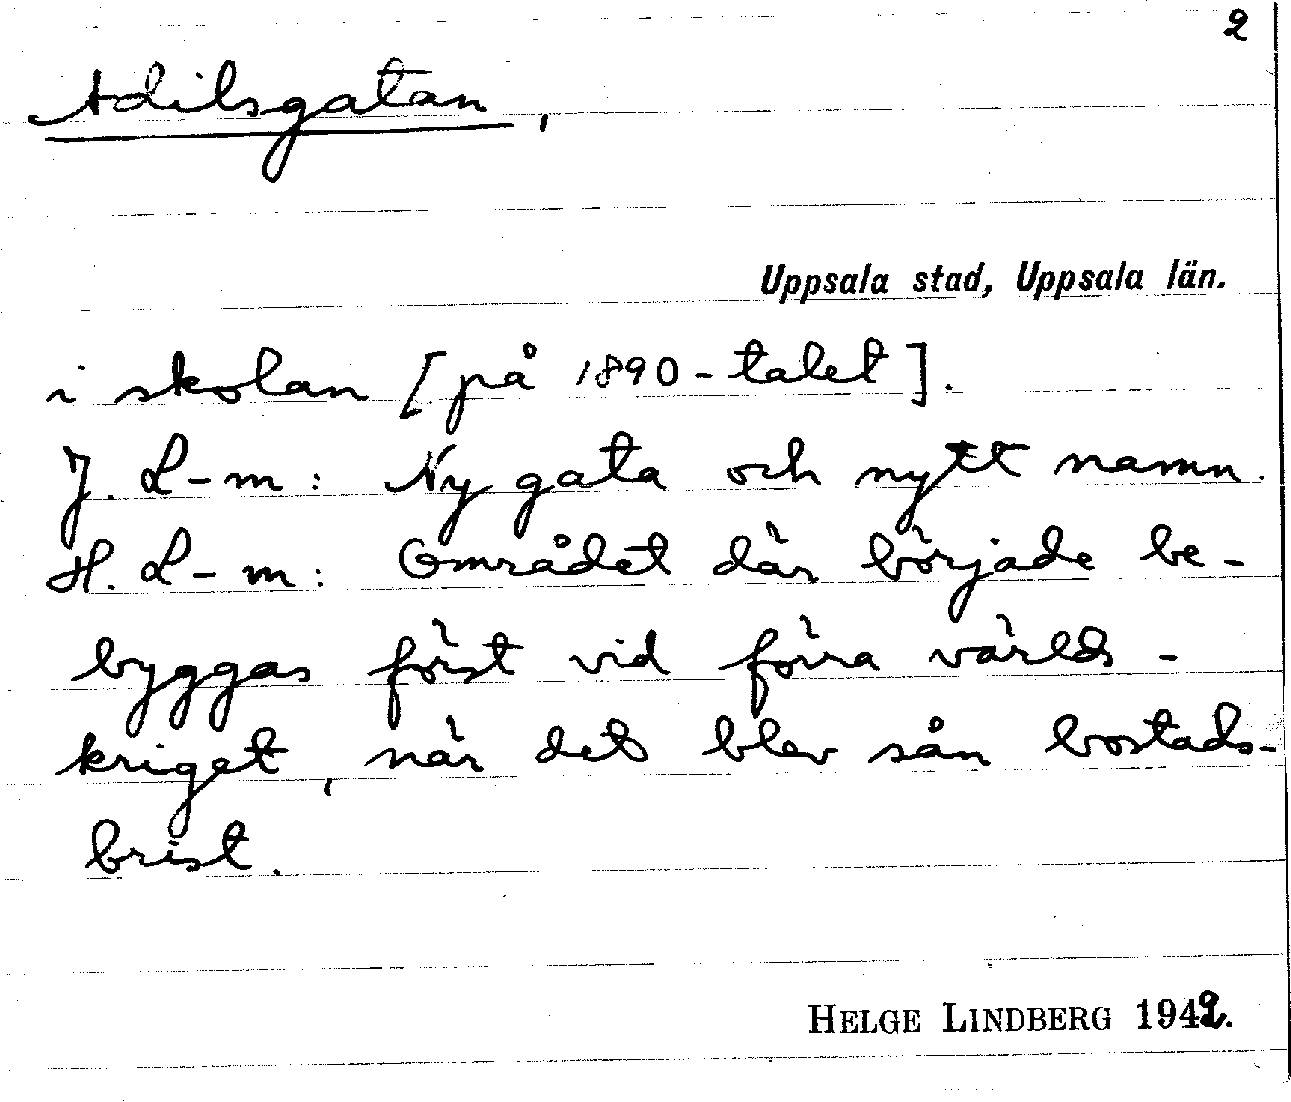 2
Adilsgatan,
Uppsala stad, Uppsala län.
i skolan [på 1890-talet].
J. L-m: Ny gata och nytt namn.
H. L-m: Området där började be-
byggas först vid förra världs-
kriget, när det blev sån bostads-
brist.
HELGE LINDBERG 1942.